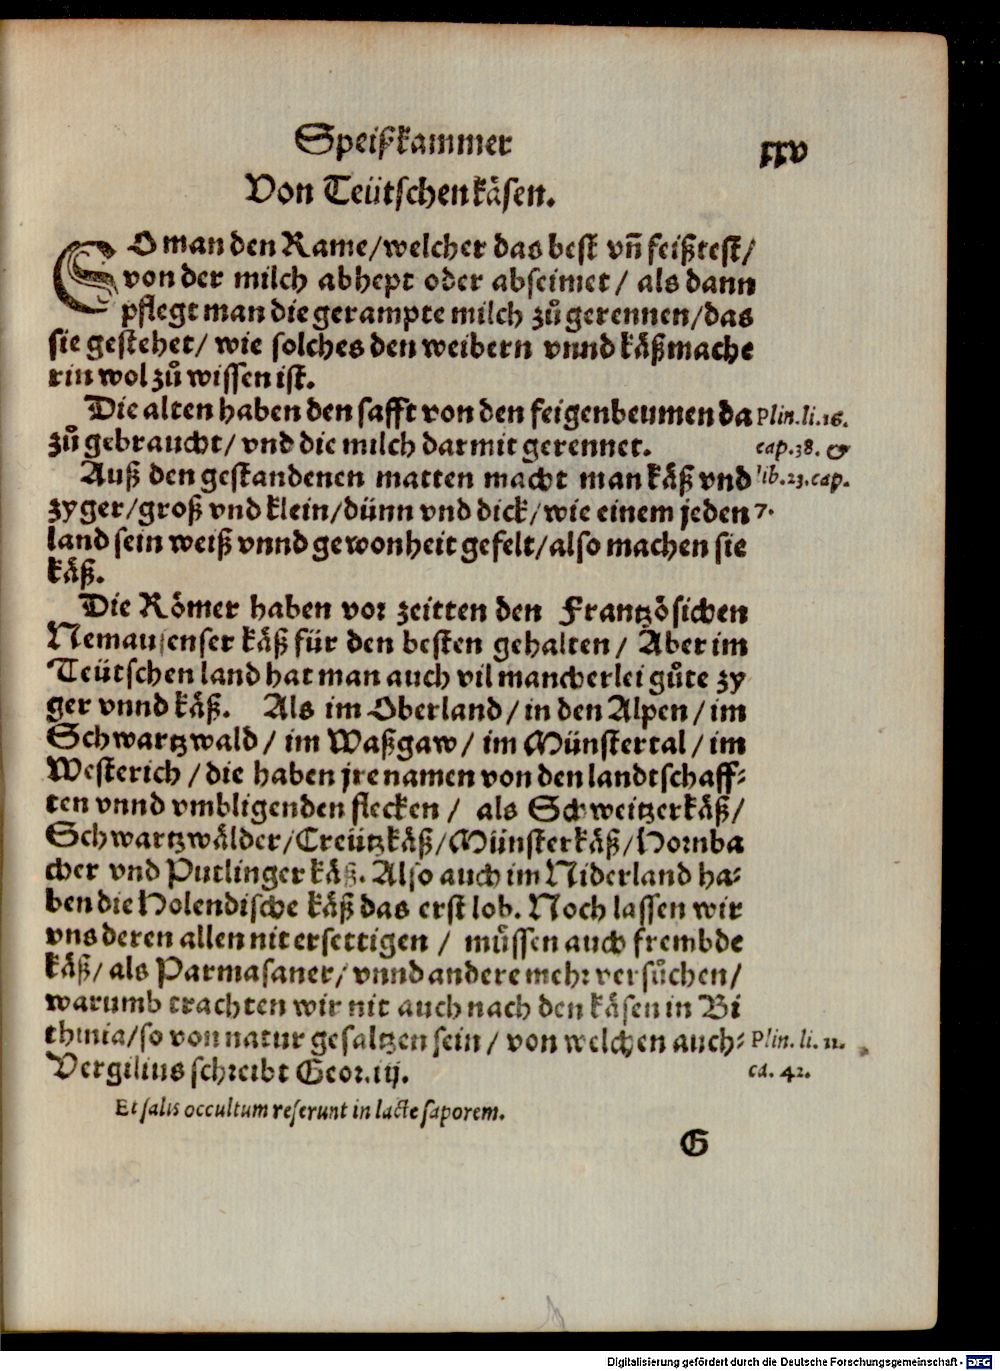 Speißkammer
xxv
Von Teütschen käsen.
SO man den Rame/welcher das best vn̄ feißtest/
von der milch abhept oder abseimet / als dann
pflegt man die gerampte milch zů gerennen/das
sie gestehet/ wie solches den weibern vnnd käßmache
rin wol zů wissen ist.
Die alten haben den safft von den feigenbeumen da
zů gebraucht/ vnd die milch darmit gerennet.
Auß den gestandenen matten macht man käß vnd
zyger/groß vnd klein/dünn vnd dick/wie einem jeden
land sein weiß vnnd gewonheit gefelt/also machen sie
käß.
Plin.li.16.
cap.38. &
lib.23.cap.
7.
Die Römer haben vor zeitten den Frantzösichen
Nemausenser käß für den besten gehalten / Aber im
Teütschen land hat man auch vil mancherlei gůte zy
ger vnnd käß. Als im Oberland / in den Alpen / im
Schwartzwald / im Waßgaw / im Münstertal / im
Westerich / die haben jre namen von den landtschaff-
ten vnnd vmbligenden flecken / als Schweitzerkäß/
Schwartzwälder/Creützkäß/Münsterkäß/Hornba
cher vnd Putlinger käß. Also auch im Niderland ha-
ben die Holendische käß das erst lob. Noch lassen wir
vns deren allen nit ersettigen / müssen auch frembde
käß/ als Parmasaner/ vnnd andere mehr versůchen/
warumb trachten wir nit auch nach den käsen in Bi
thinia/so von natur gesaltzen sein / von welchen auch-
Vergilius schreibt Geor.iij.
Plin. li. 11.
ca. 42.
Et salis occultum reserunt in lacte saporem.
G
Digitalisierung gefördert durch die Deutsche Forschungsgemeinschaft - DFG